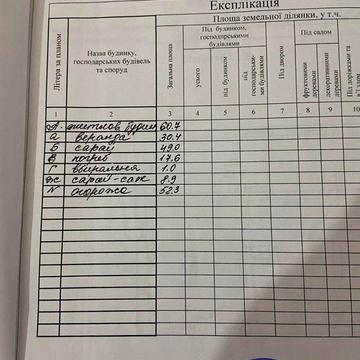 Експлікація
Площа земельної ділянки, у т.ч.
Літера за планом
Назва будинку, господарських будівель та споруд
Загальна площа
Під будинком, господарськими будівлями
усього
під будинком
під господарськи-
ми будівлями
Під двором
Під садом
фруктовими деревами
декоративними деревами
Під доріжками та
1 2 3 4 5 6 7 8 9 10
А житлов. будин 60.7
а веранда 30.4
Б сарай 49.0
В погреб 17.6
Г вбиральня 1.0
Ж сарай-саж 8.9
N огорожа 52.3